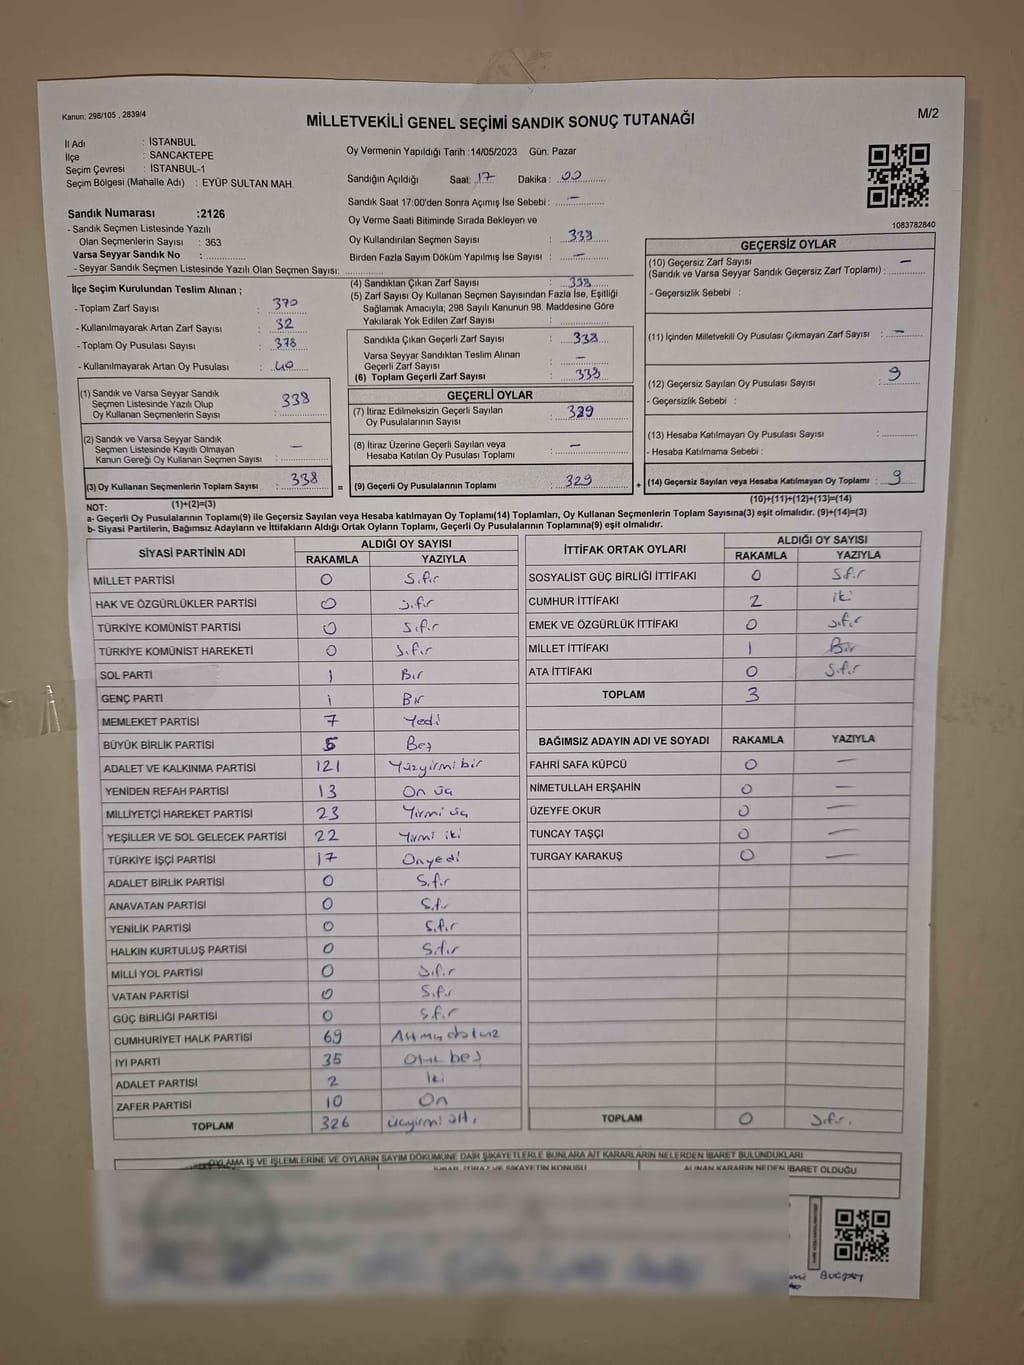 Kanun: 298/105 , 2839/4
MİLLETVEKİLİ GENEL SEÇİMİ SANDIK SONUÇ TUTANAĞI
M/2
İl Adı : İSTANBUL
İlçe : SANCAKTEPE
Seçim Çevresi : İSTANBUL-1
Seçim Bölgesi (Mahalle Adı) : EYÜP SULTAN MAH.
Oy Vermenin Yapıldığı Tarih :14/05/2023 Gün: Pazar
Sandığın Açıldığı Saat: 17 Dakika : 00
Sandık Saat 17:00'den Sonra Açımış İse Sebebi : —
Oy Verme Saati Bitiminde Sırada Bekleyen ve
Oy Kullandırılan Seçmen Sayısı : 338
Birden Fazla Sayım Döküm Yapılmış İse Sayısı : —
1083782840
Sandık Numarası :2126
- Sandık Seçmen Listesinde Yazılı
Olan Seçmenlerin Sayısı : 363
Varsa Seyyar Sandık No :
- Seyyar Sandık Seçmen Listesinde Yazılı Olan Seçmen Sayısı:
İlçe Seçim Kurulundan Teslim Alınan ;
- Toplam Zarf Sayısı : 370
- Kullanılmayarak Artan Zarf Sayısı : 32
- Toplam Oy Pusulası Sayısı : 378
- Kullanılmayarak Artan Oy Pusulası : 40
(1) Sandık ve Varsa Seyyar Sandık
Seçmen Listesinde Yazılı Olup
Oy Kullanan Seçmenlerin Sayısı : 338
(2) Sandık ve Varsa Seyyar Sandık
Seçmen Listesinde Kayıtlı Olmayan
Kanun Gereği Oy Kullanan Seçmen Sayısı : —
(3) Oy Kullanan Seçmenlerin Toplam Sayısı : 338
(1)+(2)=(3)
(4) Sandıktan Çıkan Zarf Sayısı : 338
(5) Zarf Sayısı Oy Kullanan Seçmen Sayısından Fazla İse, Eşitliği
Sağlamak Amacıyla; 298 Sayılı Kanunun 98. Maddesine Göre
Yakılarak Yok Edilen Zarf Sayısı :
Sandıkta Çıkan Geçerli Zarf Sayısı : 338
Varsa Seyyar Sandıktan Teslim Alınan
Geçerli Zarf Sayısı : —
(6) Toplam Geçerli Zarf Sayısı : 338
GEÇERLİ OYLAR
(7) İtiraz Edilmeksizin Geçerli Sayılan
Oy Pusulalarının Sayısı : 329
(8) İtiraz Üzerine Geçerli Sayılan veya
Hesaba Katılan Oy Pusulası Toplamı : —
= (9) Geçerli Oy Pusulalarının Toplamı : 329
GEÇERSİZ OYLAR
(10) Geçersiz Zarf Sayısı
(Sandık ve Varsa Seyyar Sandık Geçersiz Zarf Toplamı) : —
- Geçersizlik Sebebi :
(11) İçinden Milletvekili Oy Pusulası Çıkmayan Zarf Sayısı : —
(12) Geçersiz Sayılan Oy Pusulası Sayısı : 9
- Geçersizlik Sebebi :
(13) Hesaba Katılmayan Oy Pusulası Sayısı :
- Hesaba Katılmama Sebebi :
+ (14) Geçersiz Sayılan veya Hesaba Katılmayan Oy Toplamı : 9
(10)+(11)+(12)+(13)=(14)
NOT:
a- Geçerli Oy Pusulalarının Toplamı(9) ile Geçersiz Sayılan veya Hesaba katılmayan Oy Toplamı(14) Toplamları, Oy Kullanan Seçmenlerin Toplam Sayısına(3) eşit olmalıdır. (9)+(14)=(3)
b- Siyasi Partilerin, Bağımsız Adayların ve İttifakların Aldığı Ortak Oyların Toplamı, Geçerli Oy Pusulalarının Toplamına(9) eşit olmalıdır.
SİYASİ PARTİNİN ADI
ALDIĞI OY SAYISI
RAKAMLA YAZIYLA
MİLLET PARTİSİ 0 Sıfır
HAK VE ÖZGÜRLÜKLER PARTİSİ 0 Sıfır
TÜRKİYE KOMÜNİST PARTİSİ 0 Sıfır
TÜRKİYE KOMÜNİST HAREKETİ 0 Sıfır
SOL PARTİ 1 Bir
GENÇ PARTİ 1 Bir
MEMLEKET PARTİSİ 7 Yedi
BÜYÜK BİRLİK PARTİSİ 5 Beş
ADALET VE KALKINMA PARTİSİ 121 Yüzyirmibir
YENİDEN REFAH PARTİSİ 13 On üç
MİLLİYETÇİ HAREKET PARTİSİ 23 Yirmi üç
YEŞİLLER VE SOL GELECEK PARTİSİ 22 Yirmi iki
TÜRKİYE İŞÇİ PARTİSİ 17 Onyedi
ADALET BİRLİK PARTİSİ 0 Sıfır
ANAVATAN PARTİSİ 0 Sıfır
YENİLİK PARTİSİ 0 Sıfır
HALKIN KURTULUŞ PARTİSİ 0 Sıfır
MİLLİ YOL PARTİSİ 0 Sıfır
VATAN PARTİSİ 0 Sıfır
GÜÇ BİRLİĞİ PARTİSİ 0 Sıfır
CUMHURİYET HALK PARTİSİ 69 Altmışdokuz
İYİ PARTİ 35 Otuz beş
ADALET PARTİSİ 2 İki
ZAFER PARTİSİ 10 On
TOPLAM 326 Üçyirmi altı
İTTİFAK ORTAK OYLARI
ALDIĞI OY SAYISI
RAKAMLA YAZIYLA
SOSYALİST GÜÇ BİRLİĞİ İTTİFAKI 0 Sıfır
CUMHUR İTTİFAKI 2 iki
EMEK VE ÖZGÜRLÜK İTTİFAKI 0 Sıfır
MİLLET İTTİFAKI 1 Bir
ATA İTTİFAKI 0 Sıfır
TOPLAM 3
BAĞIMSIZ ADAYIN ADI VE SOYADI RAKAMLA YAZIYLA
FAHRİ SAFA KÜPCÜ 0 —
NİMETULLAH ERŞAHİN 0 —
ÜZEYFE OKUR 0 —
TUNCAY TAŞÇI 0 —
TURGAY KARAKUŞ 0 —
TOPLAM 0 Sıfır.
OYLAMA İŞ VE İŞLEMLERİNE VE OYLARIN SAYIM DÖKÜMÜNE DAİR ŞİKAYETLERLE BUNLARA AİT KARARLARIN NELERDEN İBARET BULUNDUKLARI
İTİRAZ VE ŞİKAYETİN KONUSU ALINAN KARARIN NEDEN İBARET OLDUĞU